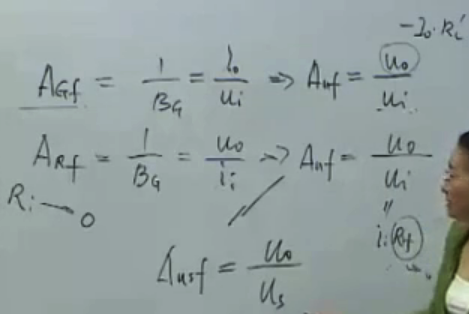 -I₀·Rᵢ'
A_Gf = 1/B_G = I₀/uᵢ => A_uf = u₀/uᵢ
A_Rf = 1/B_G = u₀/iᵢ => A_uf = u₀/uᵢ
Rᵢ → 0
iᵢ(R_if)
A_usf = u₀/u_s